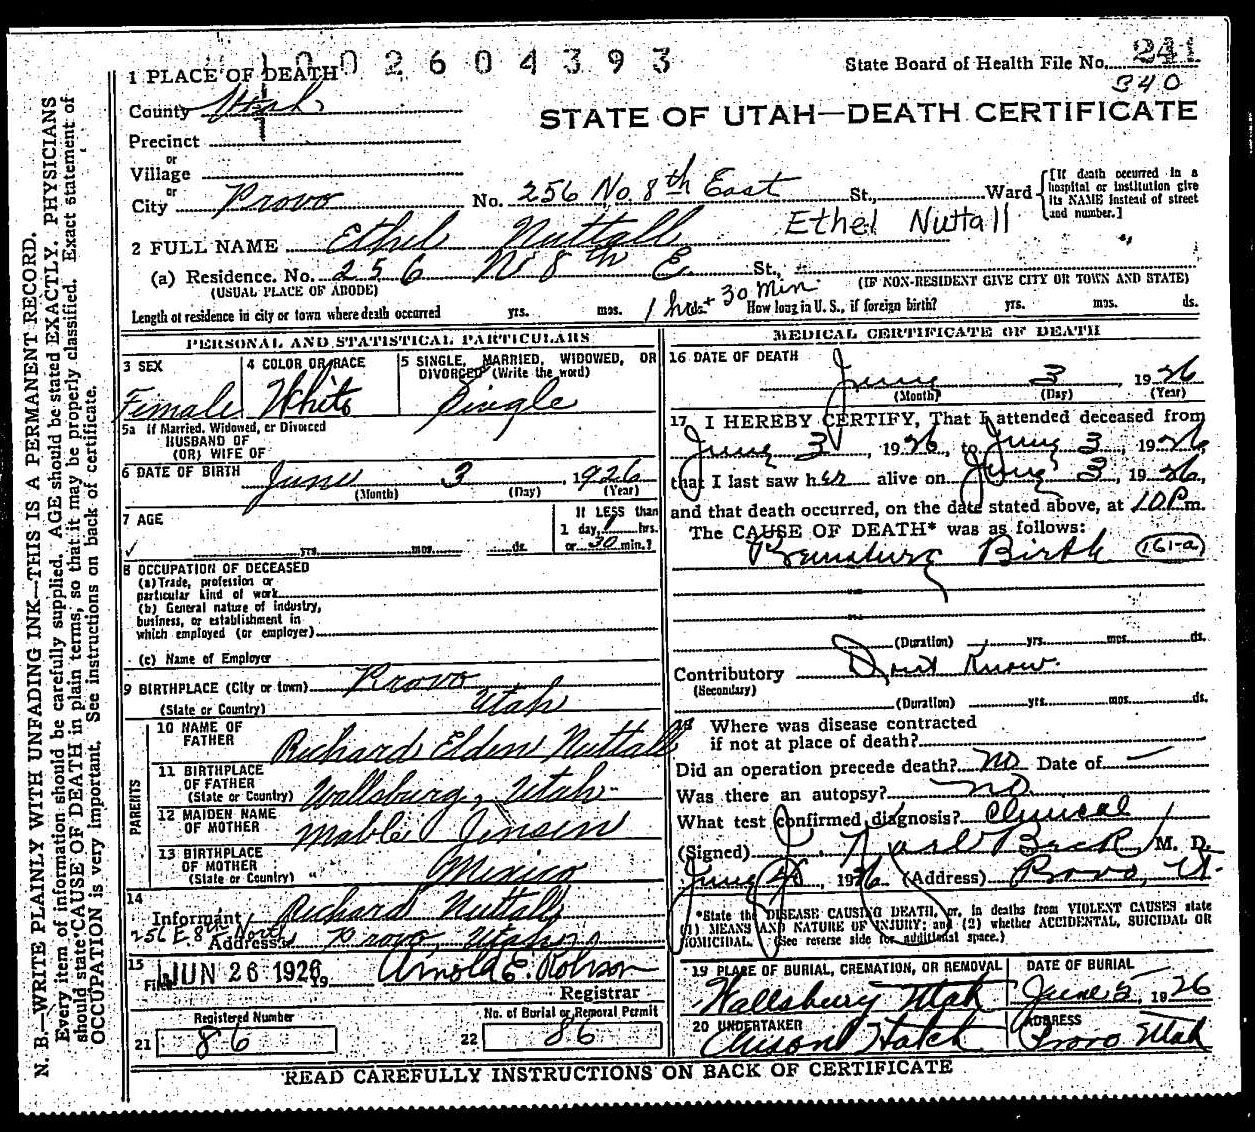 1002604393
State Board of Health File No. 241
340
1 PLACE OF DEATH
County Utah
STATE OF UTAH—DEATH CERTIFICATE
Precinct
or
Village
or
City Provo No. 256 No. 8th East St., Ward [If death occurred in a hospital or institution give its NAME instead of street and number.]
2 FULL NAME Ethel Nuttall Ethel Nuttall
(a) Residence. No. 256 N 8th E. St.,
(USUAL PLACE OF ABODE) (IF NON-RESIDENT GIVE CITY OR TOWN AND STATE)
Length of residence in city or town where death occurred yrs. mos. 1 hr ds. + 30 Min. How long in U. S., if foreign birth? yrs. mos. ds.
PERSONAL AND STATISTICAL PARTICULARS
3 SEX Female
4 COLOR OR RACE White
5 SINGLE, MARRIED, WIDOWED, OR DIVORCED (Write the word) Single
5a If Married, Widowed, or Divorced
HUSBAND OF
(OR) WIFE OF
6 DATE OF BIRTH June 3, 1926
(Month) (Day) (Year)
7 AGE yrs. mos. ds.
If LESS than
1 day, 1 hrs.
or 30 min.?
8 OCCUPATION OF DECEASED
(a) Trade, profession or
particular kind of work
(b) General nature of industry,
business, or establishment in
which employed (or employer)
(c) Name of Employer
9 BIRTHPLACE (City or town) Provo
(State or Country) Utah
PARENTS
10 NAME OF FATHER Richard Elden Nuttall
11 BIRTHPLACE OF FATHER (State or Country) Wallsburg, Utah
12 MAIDEN NAME OF MOTHER Mable Jensen
13 BIRTHPLACE OF MOTHER (State or Country) Mexico
14 Informant Richard Nuttall
256 E. 8th North
Address Provo, Utah
15 Filed JUN 26 1926 19 Arnold E. Robison
Registrar
Registered Number
21 86
No. of Burial or Removal Permit
22 86
MEDICAL CERTIFICATE OF DEATH
16 DATE OF DEATH
June 3, 1926
(Month) (Day) (Year)
17 I HEREBY CERTIFY, That I attended deceased from
June 3, 1926, to June 3 1926,
that I last saw her alive on June 3, 1926,
and that death occurred, on the date stated above, at 10 P.m.
The CAUSE OF DEATH* was as follows:
Premature Birth 161-a
(Duration) yrs. mos. ds.
Contributory Dont Know.
(Secondary)
(Duration) yrs. mos. ds.
18 Where was disease contracted
if not at place of death?
Did an operation precede death? No Date of —
Was there an autopsy? no
What test confirmed diagnosis? Clinical
(Signed) J. Beck M. D.
June 1926 (Address) Provo, Ut.
*State the DISEASE CAUSING DEATH, or, in deaths from VIOLENT CAUSES state
(1) MEANS AND NATURE OF INJURY; and (2) whether ACCIDENTAL, SUICIDAL OR
HOMICIDAL. (See reverse side for additional space.)
19 PLACE OF BURIAL, CREMATION, OR REMOVAL
Wallsburg Utah
DATE OF BURIAL
June 5, 1926
20 UNDERTAKER
Hatch
ADDRESS
Provo Utah
READ CAREFULLY INSTRUCTIONS ON BACK OF CERTIFICATE
N. B.—WRITE PLAINLY WITH UNFADING INK—THIS IS A PERMANENT RECORD.
Every item of information should be carefully supplied. AGE should be stated EXACTLY. PHYSICIANS
should state CAUSE OF DEATH in plain terms, so that it may be properly classified. Exact statement of
OCCUPATION is very important. See instructions on back of certificate.